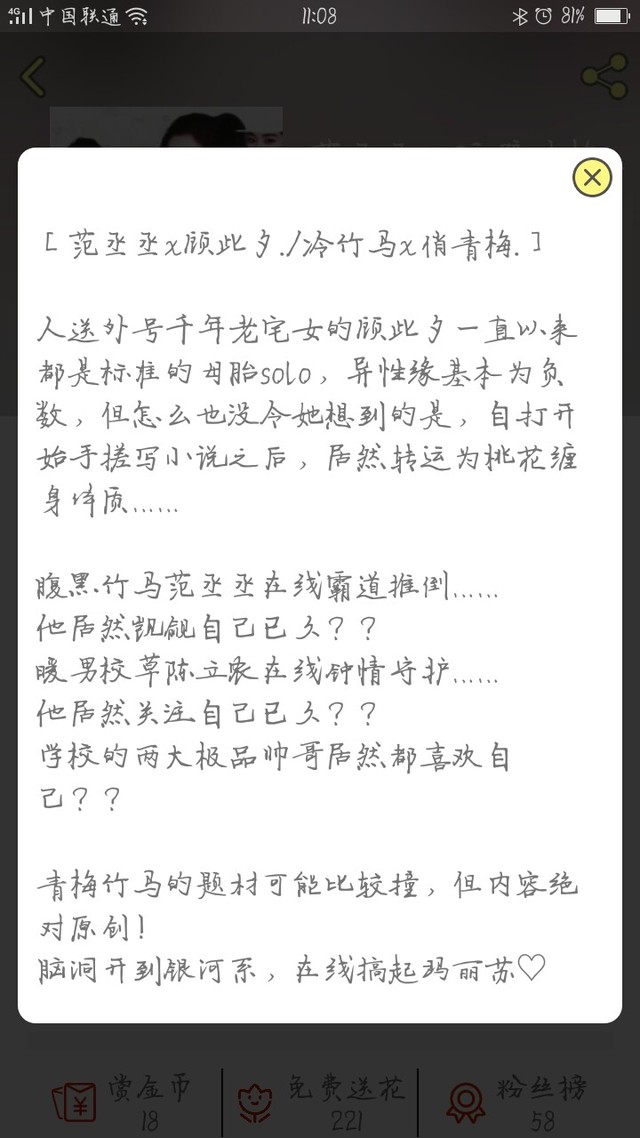 4G 中国联通 11:08 81%
[ 范丞丞x顾此夕./冷竹马x俏青梅. ]
人送外号千年老宅女的顾此夕一直以来
都是标准的母胎solo，异性缘基本为负
数，但怎么也没令她想到的是，自打开
始手搓写小说之后，居然转运为桃花缠
身体质……
腹黑竹马范丞丞在线霸道推倒……
他居然觊觎自己已久？？
暖男校草陈立农在线钟情守护……
他居然关注自己已久？？
学校的两大极品帅哥居然都喜欢自
己？？
青梅竹马的题材可能比较撞，但内容绝
对原创！
脑洞开到银河系，在线搞起玛丽苏♡
赏金币 免费送花 粉丝榜
18 221 58